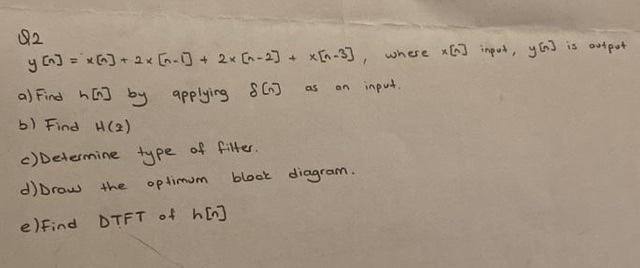 Q2
y[n] = x[n] + 2x[n-1] + 2x[n-2] + x[n-3], where x[n] input, y[n] is output
a) Find h[n] by applying δ[n] as an input.
b) Find H(z)
c) Determine type of filter.
d) Draw the optimum block diagram.
e) Find DTFT of h[n]